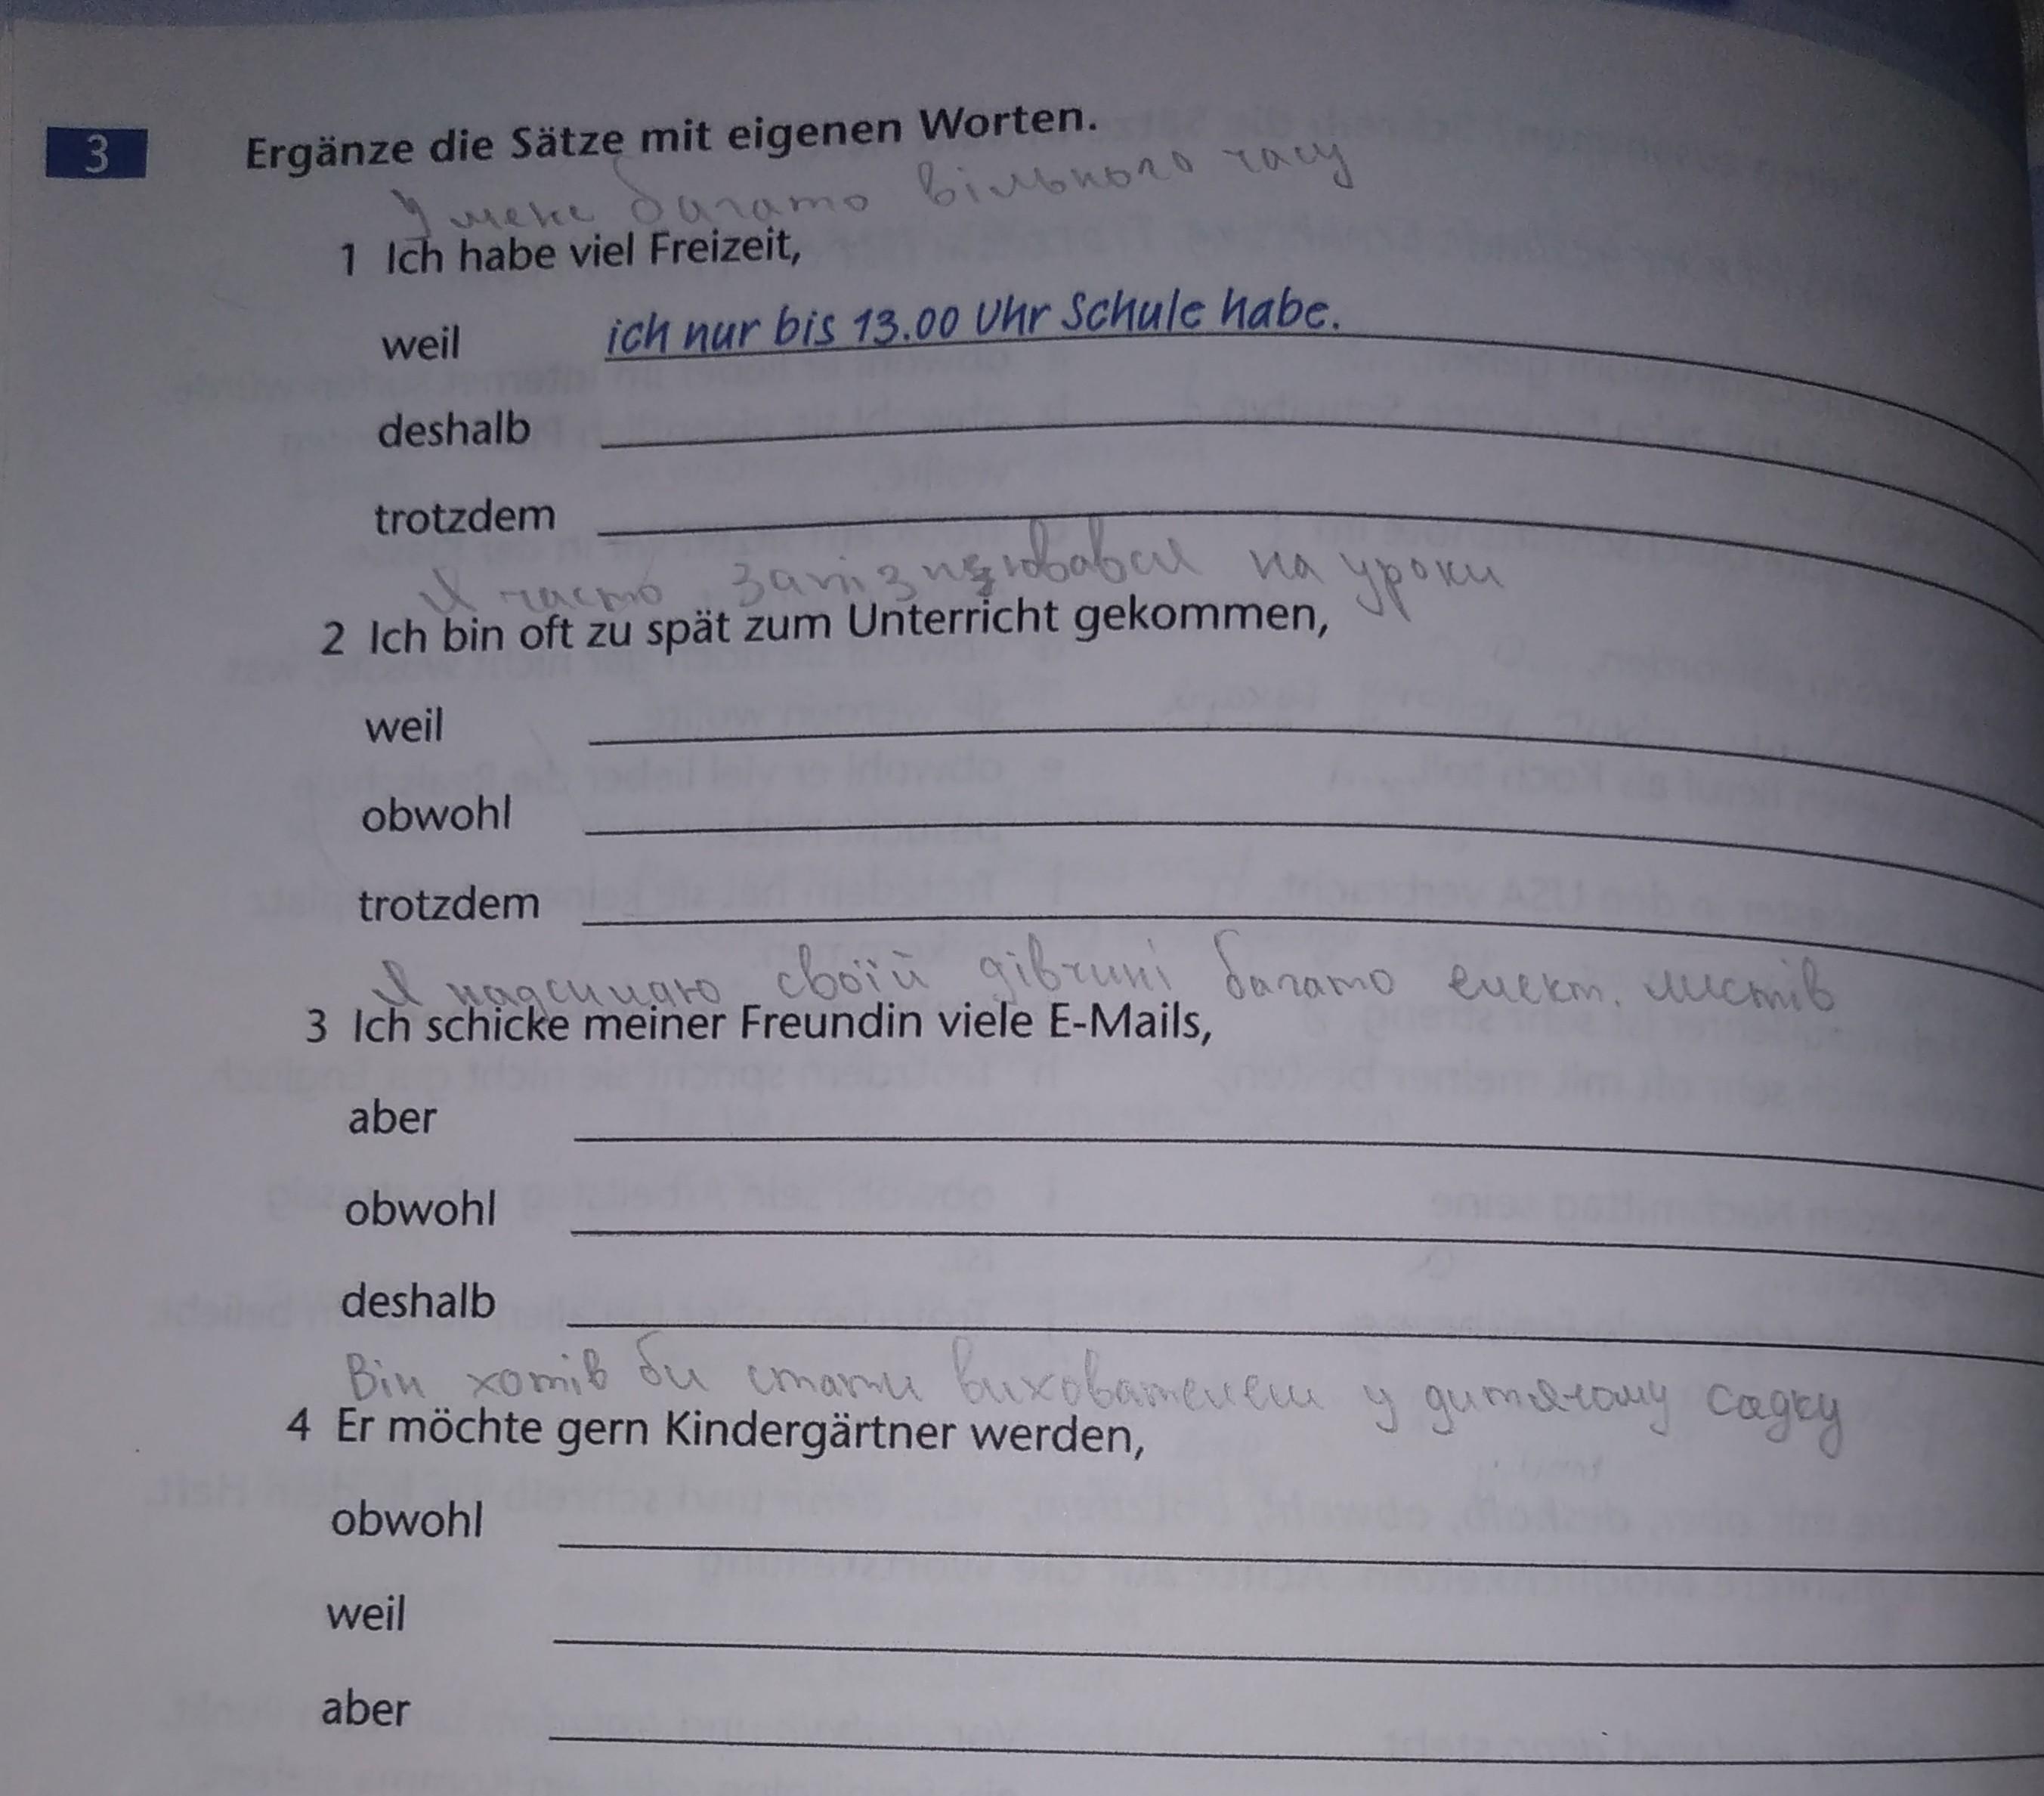 3 Ergänze die Sätze mit eigenen Worten.
У мене багато вільного часу
1 Ich habe viel Freizeit,
weil ich nur bis 13.00 Uhr Schule habe.
deshalb
trotzdem
Я часто запізнювався на уроки
2 Ich bin oft zu spät zum Unterricht gekommen,
weil
obwohl
trotzdem
Я надсилаю своїй дівчині багато елект. листів
3 Ich schicke meiner Freundin viele E-Mails,
aber
obwohl
deshalb
Він хотів би стати вихователем у дитячому садку
4 Er möchte gern Kindergärtner werden,
obwohl
weil
aber